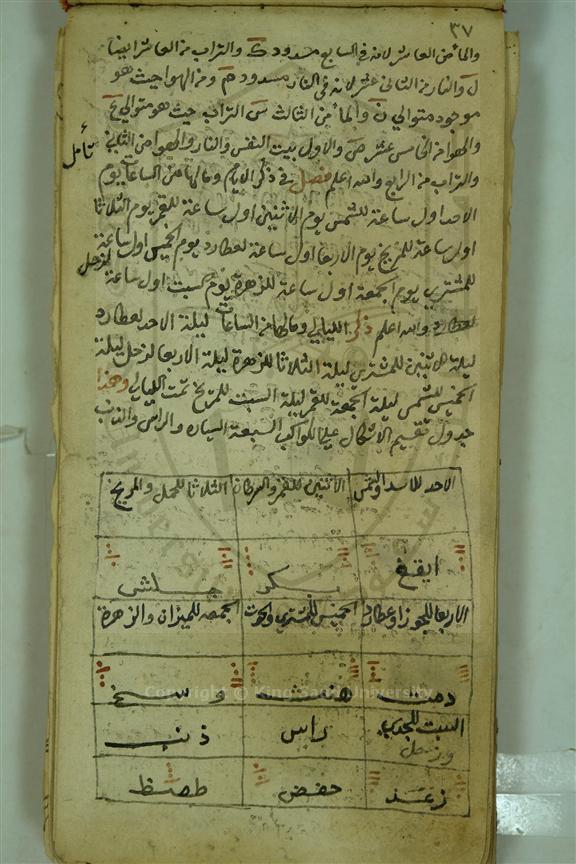 ٣٧
والماء من العاشر لانه في السابع مسدود ك والتراب من العاشر ايضا
ل والنار من الثاني عشر لانه في النار مسدود م ومن الهوا حيث هو
موجود متوالي ن والماء من الثالث س التراب حيث هو متوالي ع
والهوا من الخامس عشر ص والاول بيت النفس والنار والهوا من الثاني
تأمل
والتراب من الرابع والله اعلم فصل في ذكر الايام وما لها من الساعات يوم
الاحد اول ساعة للشمس يوم الاثنين اول ساعة للقمر يوم الثلاثا
اول ساعة للمريخ يوم الاربعا اول ساعة لعطارد يوم الخميس اول ساعة
للمشتري يوم الجمعة اول ساعة للزهرة يوم السبت اول ساعة لزحل
والله اعلم ذكر الليالي وما لها من الساعات ليلة الاحد لعطارد
ليلة الاثنين للمشتري ليلة الثلاثا للزهرة ليلة الاربعا لزحل ليلة
الخميس للشمس ليلة الجمعة للقمر ليلة السبت للمريخ تمت الليالي وهذا
جدول تقسيم الاشكال على الكواكب السبعة السياره والراس والذنب
الاحد للاسد والشمس الاثنين للقمر والسرطان الثلاثا للحمل والمريخ
ايقغ بكر جلش
الاربعا للجوزا وعطارد الخميس للمشتري والحوت الجمعه للميزان والزهرة
دمت هنث وسخ
السبت للجدي وزحل راس ذنب
زعذ حفض طصظ
Copyright © King Saud University